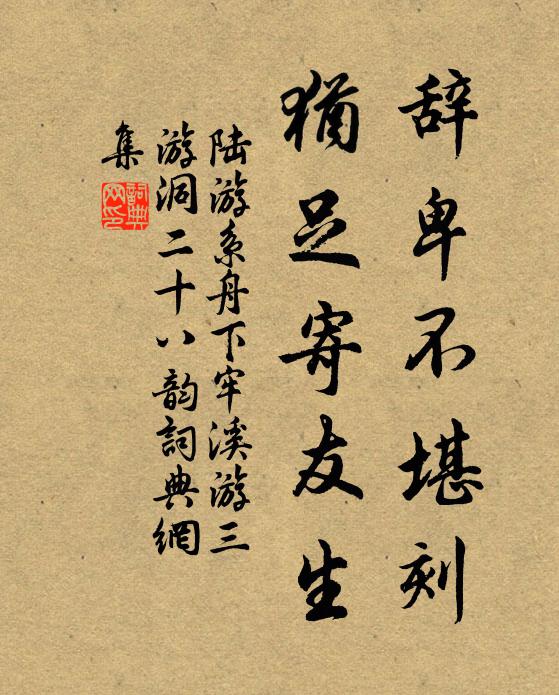 辞卑不堪刻
犹足寄友生
陆游系舟下牢溪游三
游洞二十八韵詞典網
集
詞典网印